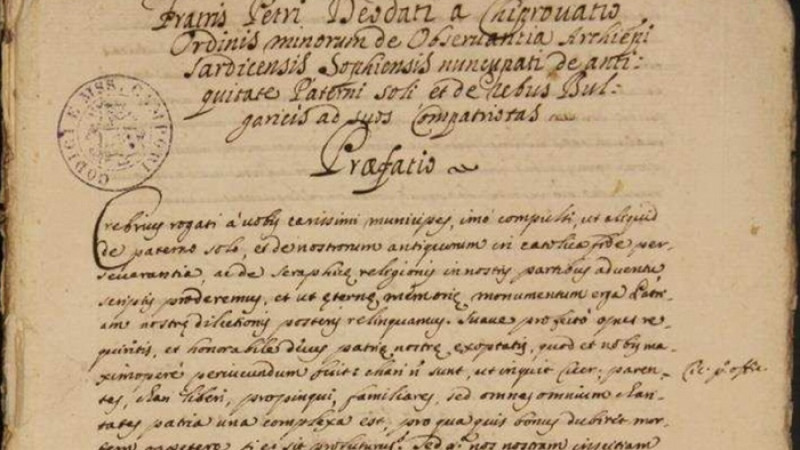 Fratris Petri Deodati a Chiprovatio
Ordinis minorum de Observantia Archiepi
Sardicensis Sophiensis nuncupati de anti-
quitate Paterni soli et de rebus Bul-
garicis ad suos Compatriotas
CODICI E MSS. CAMPORI
Præfatio
Crebrius rogati à vobis carissimi municipes, imò compulsi, ut aliquid
de paterno solo, et de nostrorum antiquorum in catolica fide per-
severantia, ac de seraphicę religionis in nostris partibus adventu
scriptis proderemus, et ut ęternę memorię monumentum erga Patri-
am nostrę dilectionis posteris relinquamus. Suave profectò opus re-
quiritis, et honorabile decus patrię nostrę exoptatis, quod et nobis ma-
ximoperè periucundum
sunt, ut inquit Cicer: paren-
Cic. pº offic.
tes, chari liberi, propinqui, familiares, sed omnes omnium chari-
tates patria una complexa est, pro qua quis bonus dubitet mor-
tem appetere, si ei sit profuturus? Sed
nos nostram